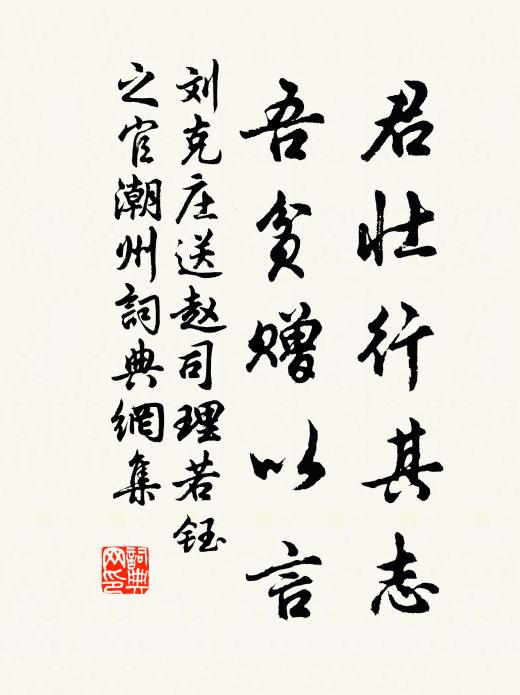 君壮行其志
吾贫赠以言
刘克庄送赵司理若钰
之官潮州詞典網集
詞典网印